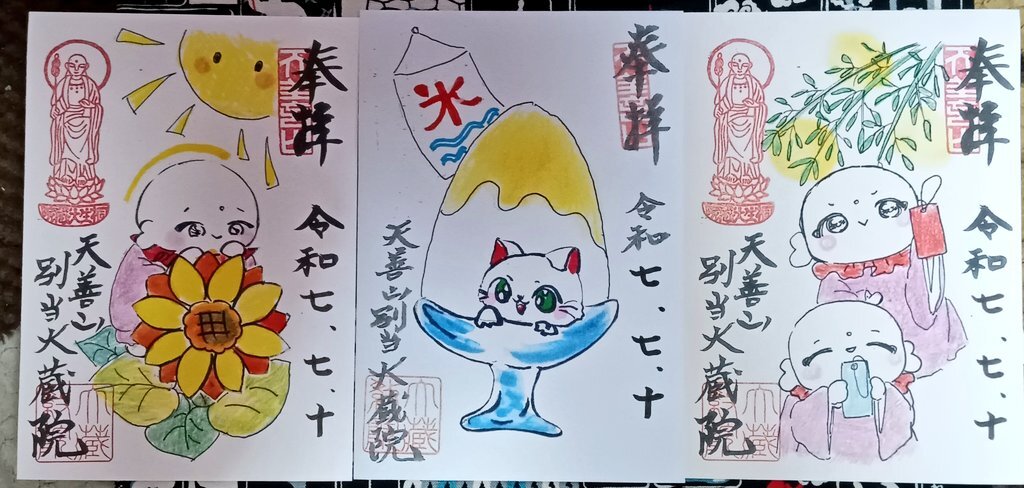 奉拝
令和七、七、十
天善山
別当火蔵院
氷
奉拝
令和七、七、十
天善山別当火蔵院
奉拝
令和七、七、十
天善山
別当火蔵院